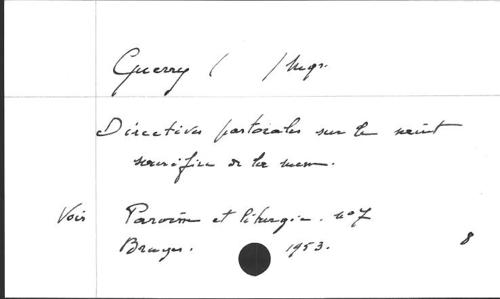 Guerry ( ) Mgr.
Directives pastorales sur le saint
sacrifice de la messe.
Voir Paroisse et liturgie. no 7
Bruges. 1953.
8